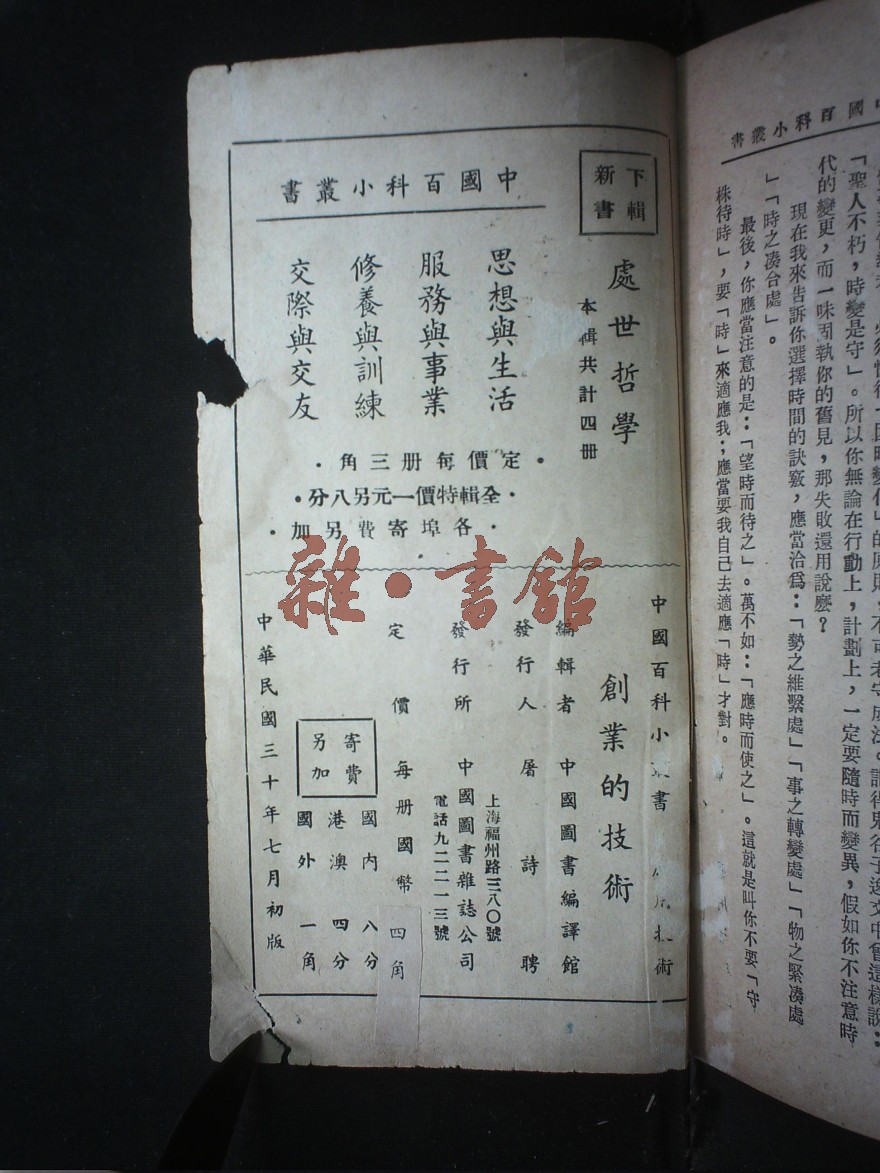 中國百科小叢書
「聖人不朽，時變是守」。所以你無論在行動上，計劃上，一定要隨時而變異，假如你不注意時
代的變更，而一味固執你的舊見，那失敗還用說麼？
現在我來告訴你選擇時間的訣竅，應當洽爲：「勢之維繫處」「事之轉變處」「物之緊湊處
」「時之湊合處」。
最後，你應當注意的是：「望時而待之」。萬不如：「應時而使之」。這就是叫你不要「守
株待時」，要「時」來適應我；應當要我自己去適應「時」才對。
下輯新書
處世哲學
本輯共計四册
中國百科小叢書
思想與生活
服務與事業
修養與訓練
交際與交友
·定價每册三角·
·全輯特價一元另八分·
·各埠寄費另加·
雜·書館
中國百科小叢書
創業的技術
編輯者 中國圖書編譯館
發行人 屠詩聘
上海福州路三八〇號
發行所 中國圖書雜誌公司
電話九二二一三號
定價 每册國幣四角
寄費另加
國內 八分
港澳 四分
國外 一角
中華民國三十年七月初版